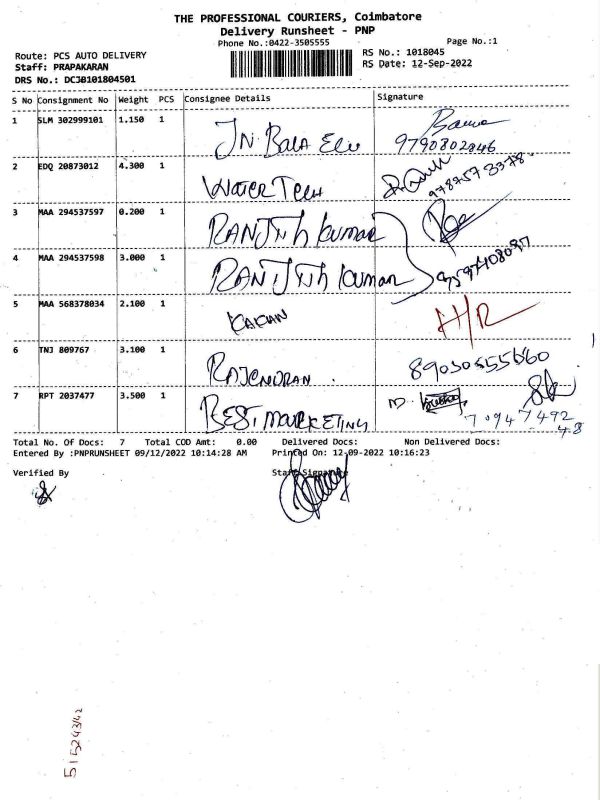 THE PROFESSIONAL COURIERS, Coimbatore
Delivery Runsheet - PNP
Phone No.:0422-3505555
Page No.:1
Route: PCS AUTO DELIVERY
RS No.: 1018045
Staff: PRAPAKARAN
RS Date: 12-Sep-2022
DRS No.: DCJ0101804501
S No Consignment No Weight PCS Consignee Details Signature
1 SLM 302999101 1.150 1 JN. BALA
9790802846
2 EDQ 20873012 4.300 1 WATER TECH
3 MAA 294537597 0.200 1 RANJITH KUMAR
4 MAA 294537598 3.000 1 RANJITH KUMAR
5 MAA 568378034 2.100 1 H/R
6 TNJ 809767 3.100 1 RAJENDRAN .
7 RPT 2037477 3.500 1 BEST. MARKETING
70947492
48
Total No. Of Docs: 7 Total COD Amt: 0.00 Delivered Docs: Non Delivered Docs:
Entered By :PNPRUNSHEET 09/12/2022 10:14:28 AM Printed On: 12-09-2022 10:16:23
Verified By Staff Signature